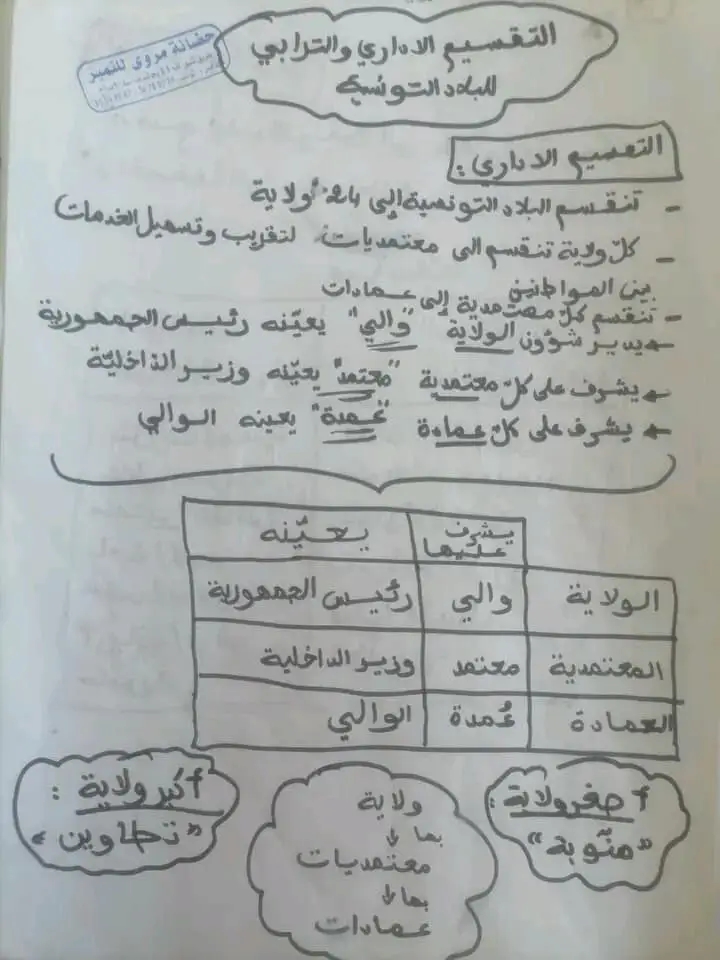 التقسيم الاداري والترابي
للبلاد التونسية
حضانة مروى للتميز
التقسيم الاداري :
- تنقسم البلاد التونسية إلى 24 ولاية
- كل ولاية تنقسم الى معتمديات لتقريب وتسهيل الخدمات
بين المواطنين
- تنقسم كل معتمدية إلى عمادات
← يدير شؤون الولاية "والي" يعيّنه رئيس الجمهورية
← يشرف على كلّ معتمدية "معتمد" يعيّنه وزير الداخليّة
← يشرف على كلّ عمادة "عُمدة" يعينه الوالي
يشرف عليها يعيّنه
الولاية والي رئيس الجمهورية
المعتمدية معتمد وزير الداخلية
العمادة عُمدة الوالي
أصغر ولاية :
"منّوبة"
ولاية
بها ↓
معتمديات
بها ↓
عمادات
أكبر ولاية :
"تطاوين"